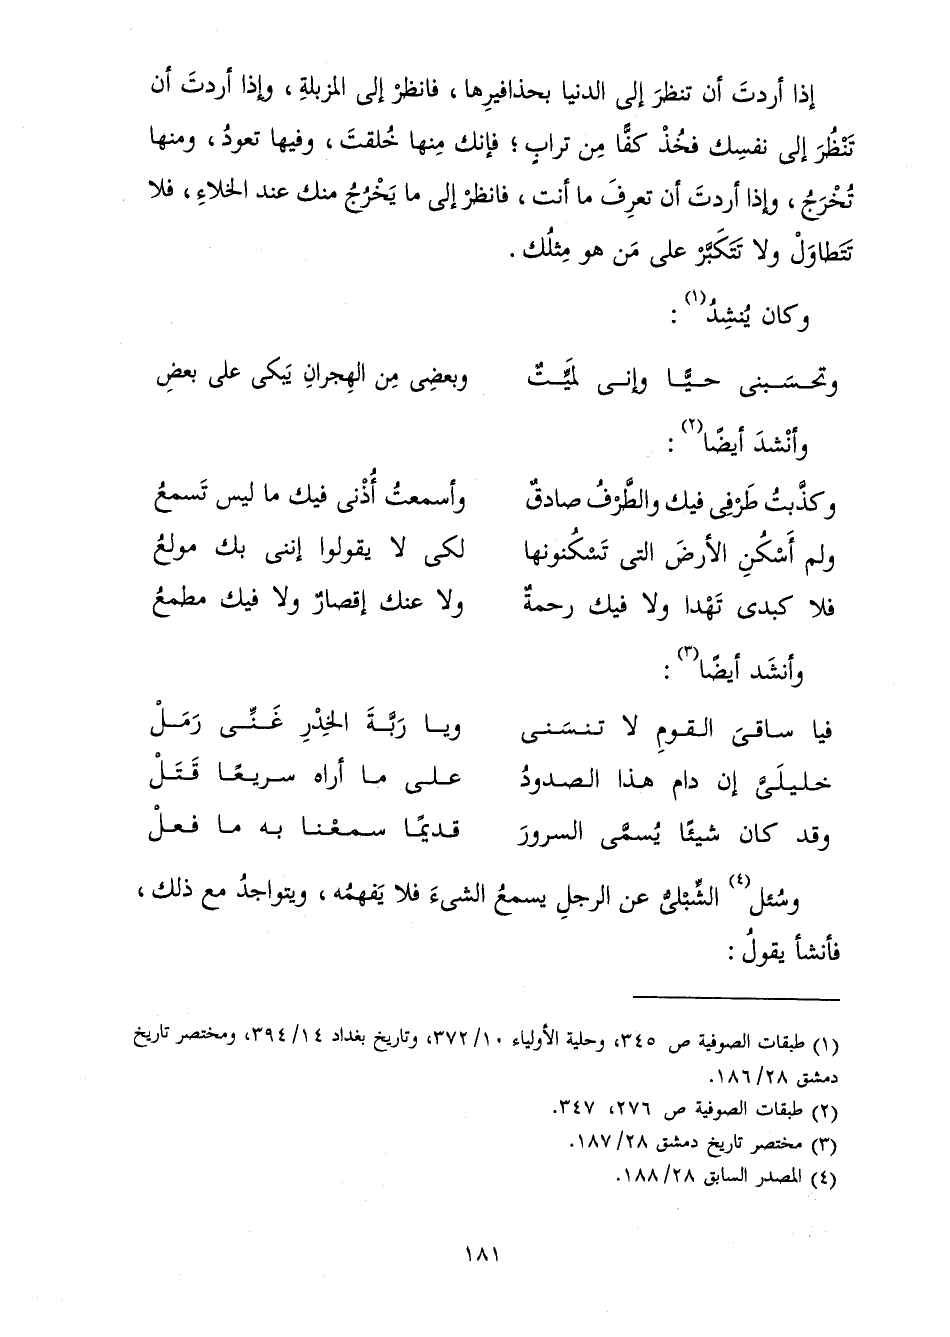 إذا أردتَ أن تنظرَ إلى الدنيا بحذافيرِها ، فانظرْ إلى المزبلةِ ، وإذا أردتَ أن
تَنْظُرَ إلى نفسِك فخُذْ كفًّا مِن ترابٍ ؛ فإنك مِنها خُلقتَ ، وفيها تعودُ ، ومنها
تُخْرَجُ ، وإذا أردتَ أن تعرِفَ ما أنت ، فانظرْ إلى ما يَخْرُجُ منك عند الخلاءِ ، فلا
تَتَطاوَلْ ولا تَتَكَبَّرْ على مَن هو مِثلُك .
وكان يُنشِدُ(١) :
وتحسَبنى حيًّا وإنى لميَّتٌ وبعضِى مِن الهِجرانِ يَبكى على بعضِ
وأنْشدَ أيضًا(٢) :
وكذَّبتُ طَرْفِى فيك والطَّرْفُ صادقٌ وأسمعتُ أُذْنى فيك ما ليس تَسمعُ
ولم أَسْكُنِ الأرضَ التى تَسْكُنونها لكى لا يقولوا إننى بك مولعُ
فلا كبدى تَهْدا ولا فيك رحمةٌ ولا عنك إقصارٌ ولا فيك مطمعُ
وأنشَد أيضًا(٣) :
فيا ساقىَ القومِ لا تنسَنى ويا رَبَّةَ الخِدْرِ غَنِّى رَمَلْ
خليلَىَّ إن دام هذا الصدودُ على ما أراه سريعًا قَتَلْ
وقد كان شيئًا يُسمَّى السرورَ قديمًا سمعْنا به ما فعلْ
وسُئل(٤) الشِّبْلىُّ عن الرجلِ يسمعُ الشىءَ فلا يَفهمُه ، ويتواجدُ مع ذلك ،
فأنشأ يقولُ :
(١) طبقات الصوفية ص ٣٤٥، وحلية الأولياء ١٠/ ٣٧٢، وتاريخ بغداد ١٤/ ٣٩٤، ومختصر تاريخ
دمشق ٢٨/ ١٨٦.
(٢) طبقات الصوفية ص ٢٧٦، ٣٤٧.
(٣) مختصر تاريخ دمشق ٢٨/ ١٨٧.
(٤) المصدر السابق ٢٨/ ١٨٨.
١٨١